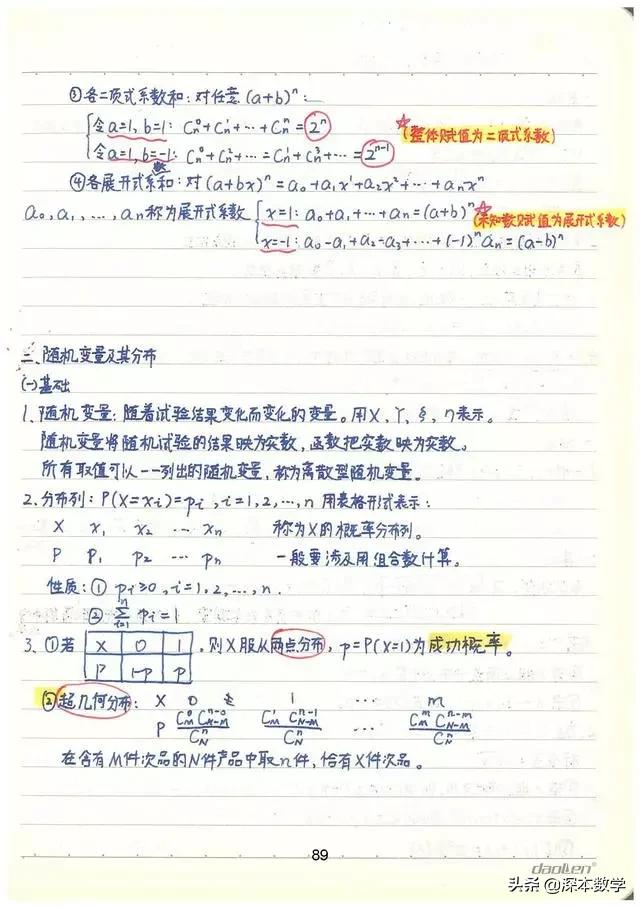 ③各二项式系数和：对任意(a+b)ⁿ：
令a=1,b=1: Cₙ⁰+Cₙ¹+…+Cₙⁿ=2ⁿ (整体赋值为二项式系数)
令a=1,b=-1: Cₙ⁰+Cₙ²+…=Cₙ¹+Cₙ³+…=2ⁿ⁻¹
④各展开式系数和：对(a+bx)ⁿ=a₀+a₁x¹+a₂x²+…+aₙxⁿ
a₀,a₁,…,aₙ称为展开式系数 x=1: a₀+a₁+…+aₙ=(a+b)ⁿ (未知数赋值为展开式系数)
x=-1: a₀-a₁+a₂-a₃+…+(-1)ⁿaₙ=(a-b)ⁿ
二、随机变量及其分布
(一)基础
1、随机变量：随着试验结果变化而变化的变量。用X，Y，ξ，η表示。
随机变量将随机试验的结果映为实数，函数把实数映为实数。
所有取值可以一一列出的随机变量，称为离散型随机变量。
2、分布列：P(X=xᵢ)=pᵢ，i=1,2,…,n 用表格形式表示：
X x₁ x₂ … xₙ 称为X的概率分布列。
P P₁ p₂ … pₙ 一般要涉及用组合数计算。
性质：① pᵢ≥0，i=1,2,…,n.
② ∑ᵢ₌₁ⁿ pᵢ=1
3、①若 X 0 1 ，则X服从两点分布，p=P(X=1)为成功概率。
P 1-p p
②超几何分布： X 0 1 … m
P C_M⁰C_{N-M}^{n-0}/C_Nⁿ C_M¹C_{N-M}^{n-1}/C_Nⁿ … C_M^mC_{N-M}^{n-m}/C_Nⁿ
在含有M件次品的N件产品中取n件，恰有X件次品。
89
daolen
头条@深本数学